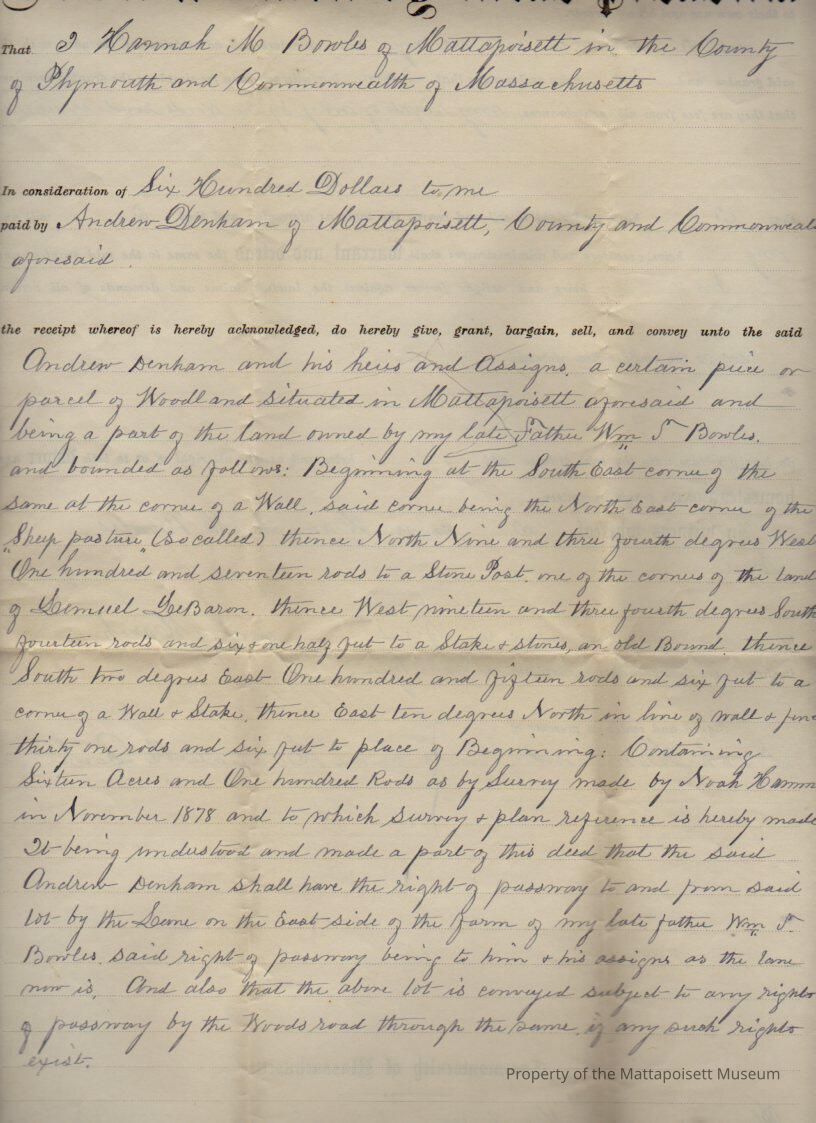 That I Hannah M Bowles of Mattapoisett in the County
of Plymouth and Commonwealth of Massachusetts
In consideration of Six Hundred Dollars to me
paid by Andrew Denham of Mattapoisett, County and Commonweal
aforesaid.
the receipt whereof is hereby acknowledged, do hereby give, grant, bargain, sell, and convey unto the said
Andrew Denham and his heirs and Assigns, a certain piece or
parcel of Woodland situated in Mattapoisett aforesaid and
being a part of the land owned by my late Father Wm T Bowles.
and bounded as follows: Beginning at the South East corner of the
same at the corner of a Wall, said corner being the North East corner of the
"Sheep pasture" (so called) thence North Nine and three fourth degrees West
One hundred and seventeen rods to a Stone Post, one of the corners of the land
of Lemuel LeBaron. thence West nineteen and three fourth degrees South
fourteen rods and six & one half feet to a Stake & stones, an old Bound. thence
South two degrees East One hundred and fifteen rods and six feet to a
corner of a Wall & Stake, thence East ten degrees North in line of wall & fenc
thirty one rods and six feet to place of Beginning: Containing
Sixteen Acres and One hundred Rods as by Survey made by Noah Hamm
in November 1878 and to which survey & plan reference is hereby made
It being understood and made a part of this deed that the said
Andrew Denham shall have the right of passway to and from said
lot by the Lane on the East side of the farm of my late father Wm T.
Bowles. said right of passway being to him & his assigns as the lane
now is. And also that the above lot is conveyed subject to any rights
of passway by the Woods road through the same, if any such rights
exist.
Property of the Mattapoisett Museum